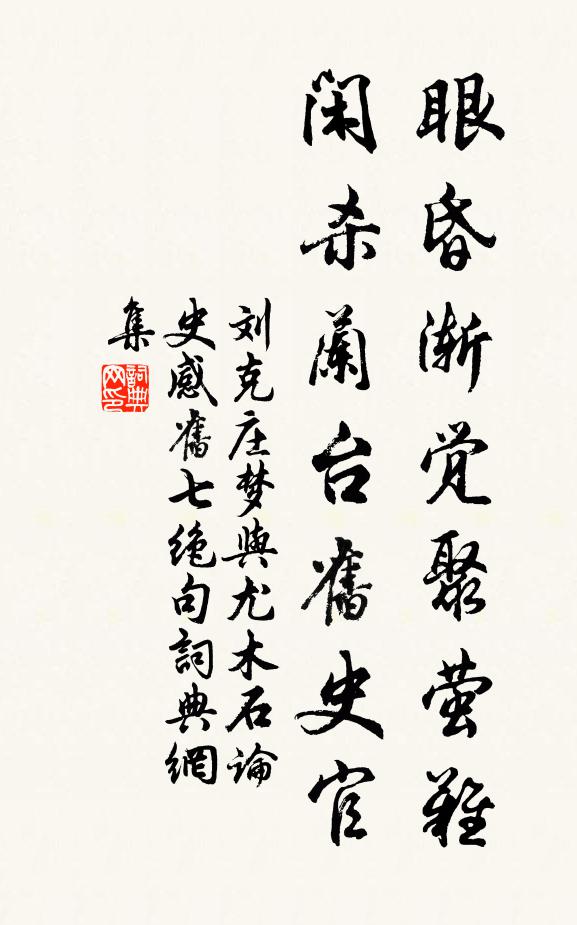 眼昏渐觉聚萤難
闲杀蘭台舊史官
刘克庄梦與尤木石論
史感舊七绝句詞典網
集
詞典
网印